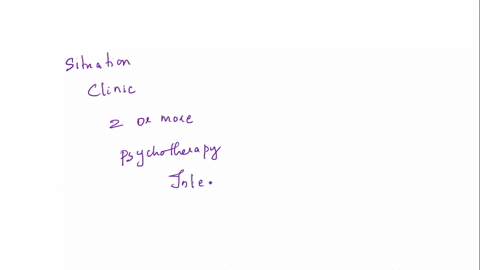 Situation
Clinic
2 or more
Psychotherapy
Inte